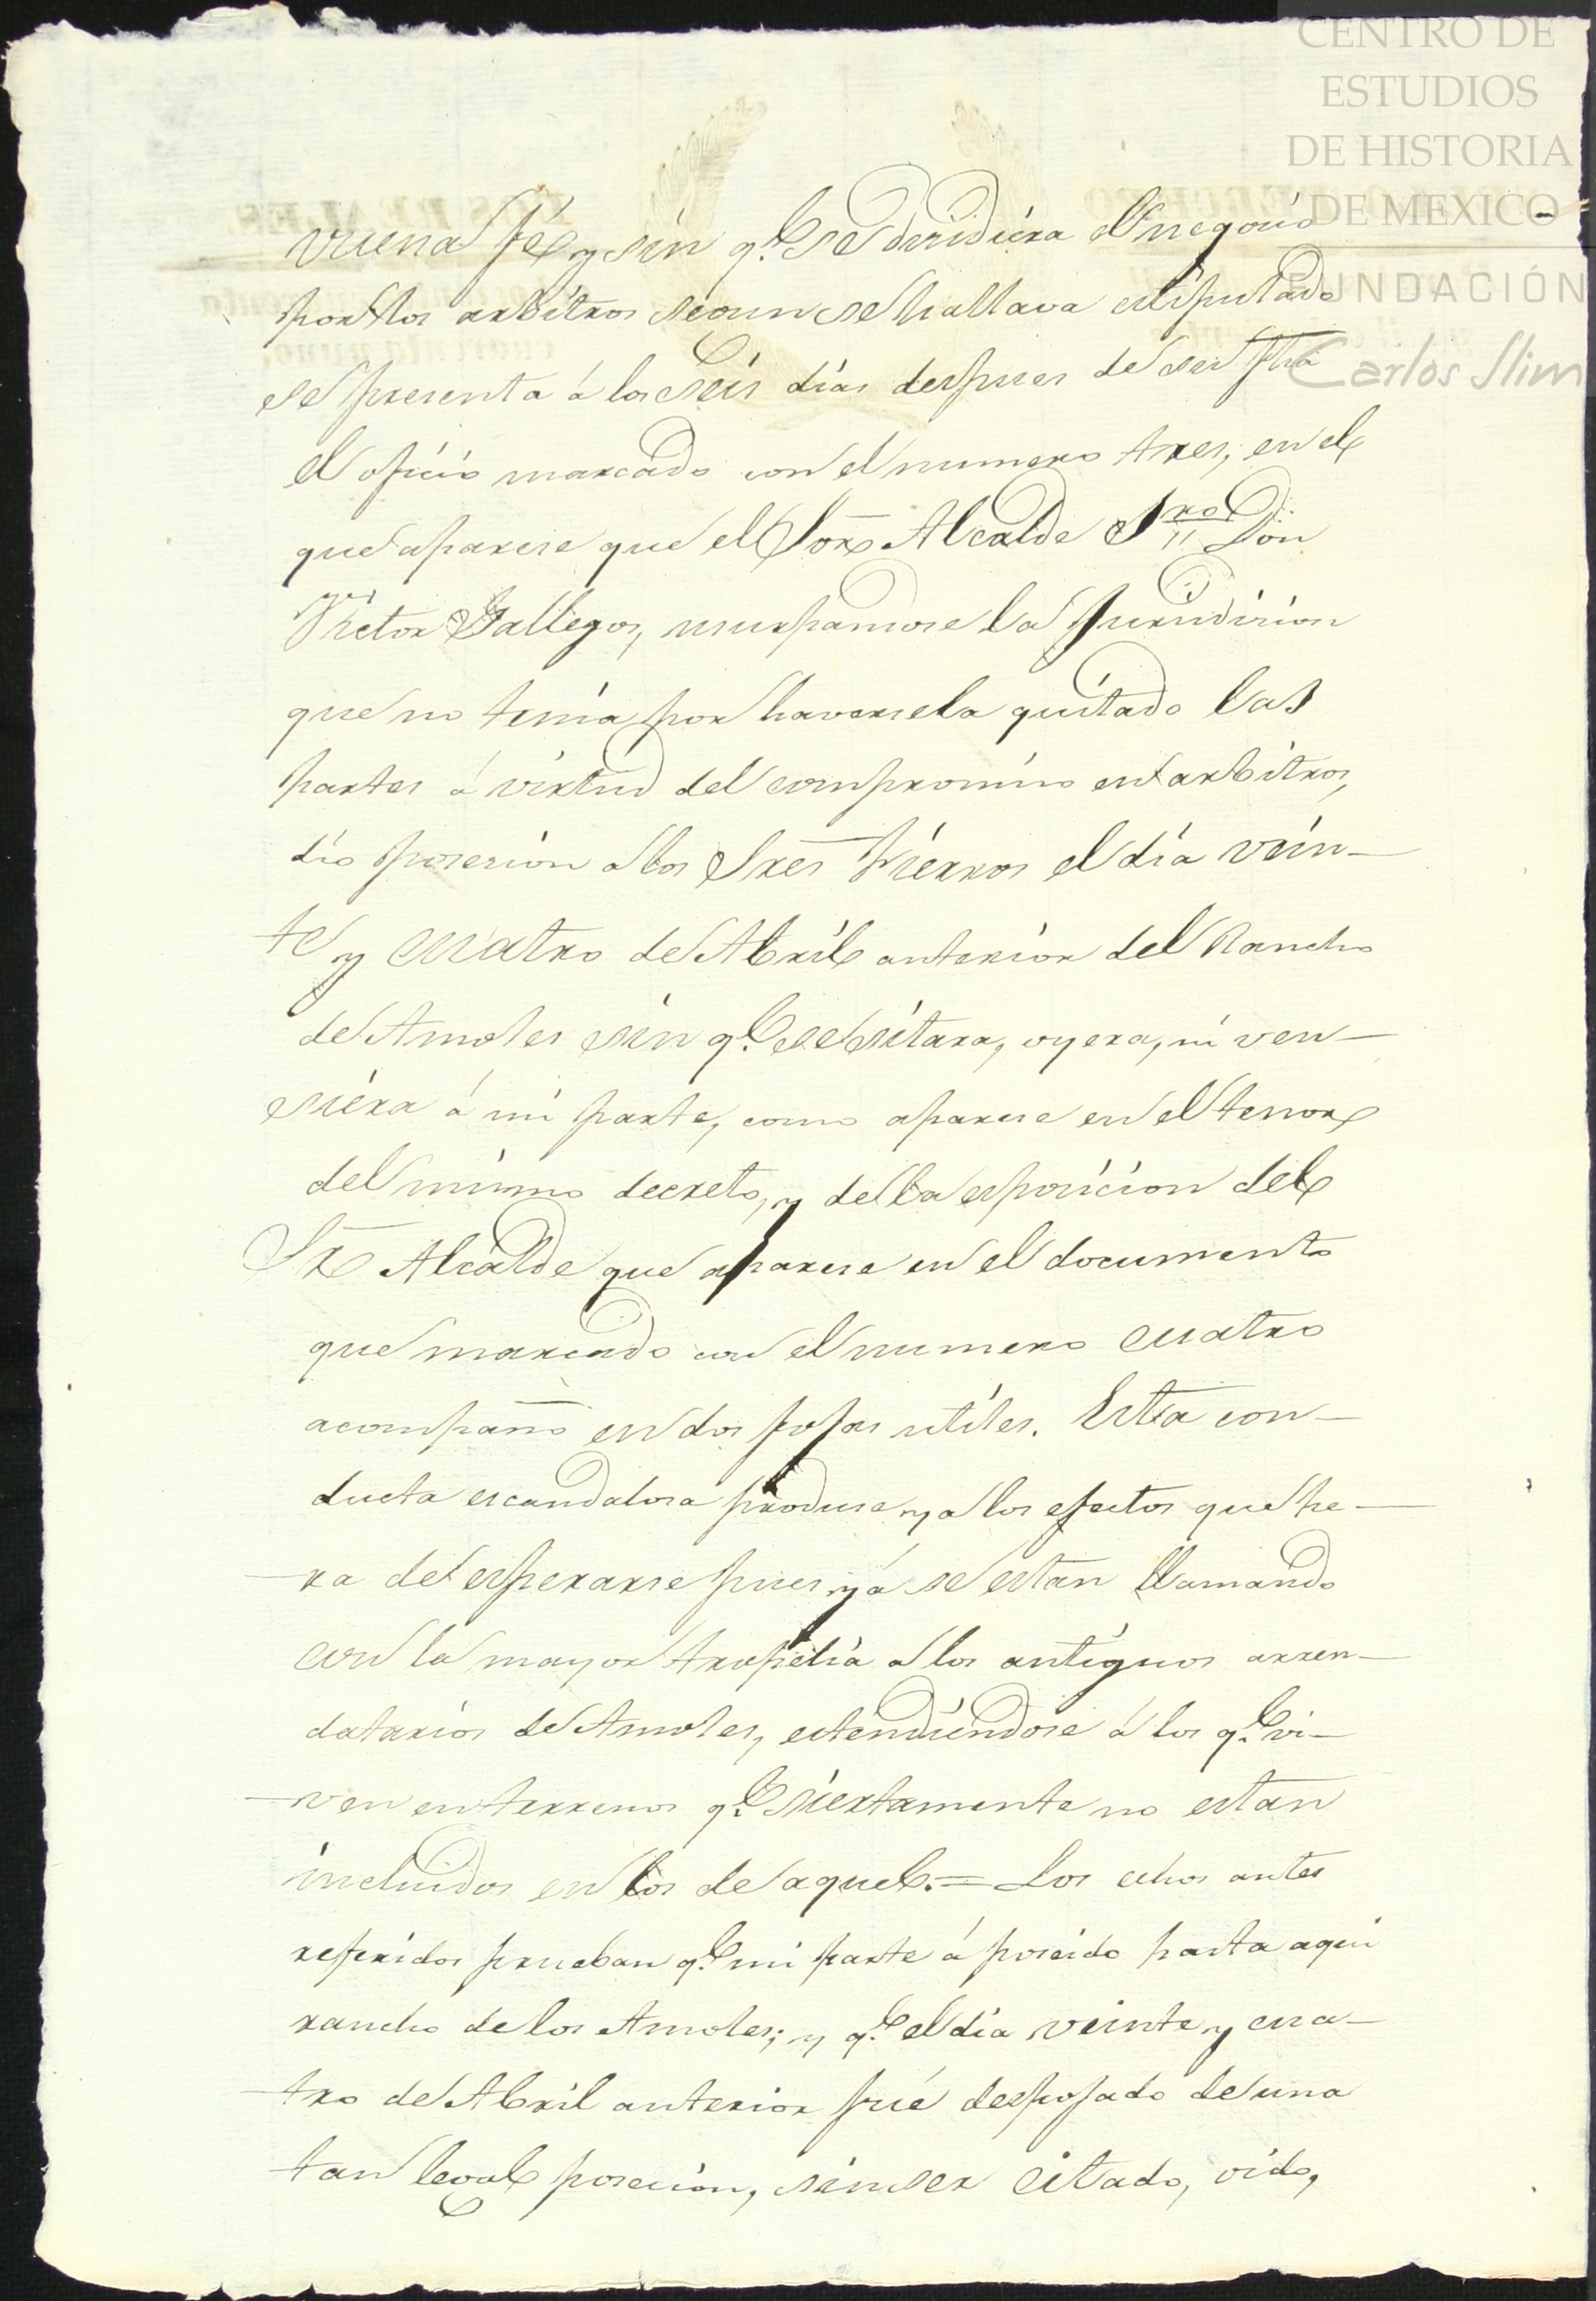 CENTRO DE
ESTUDIOS
DE HISTORIA
DE MEXICO
FUNDACIÓN
Carlos Slim
vuena fé y sin q.e se desidiera el negocio
por los arbitros segun se hallava estipulado
se presenta á los seis dias despues de su fha
el oficio marcado con el numero tres, en el
que aparese que el Sor Alcalde 1ro Don
Victor Gallegos, usurpandose la Jurisdision
que no tenia por haversela quitado las
partes á virtud del compromiso en arbitros,
dio posesion a los Sres Fierros el dia vein-
te y cuatro de Abril anterior del Rancho
de Amoles sin q.e se sitara, oyera, ni ven-
siera á mi parte, como aparese en el tenor
del mismo decreto, y de la esposicion del
Sr Alcalde que aparese en el documento
que marcado con el numero cuatro
acompaño en dos fojas utiles. Esta con-
ducta escandalosa produse ya los efectos que he-
ra de esperarse pues yá se estan llamando
con la mayor tropelia a los antiguos arren-
datarios de Amoles, estendiendose á los q.e vi-
ven en terrenos q.e siertamente no estan
incluidos en los de aquel. = Los echos antes
referidos prueban q.e mi parte á poseido hasta aqui
rancho de los Amoles; y q.e el dia veinte y cua-
tro de Abril anterior fué despojado de una
tan legal posecion, sin ser citado, oido,